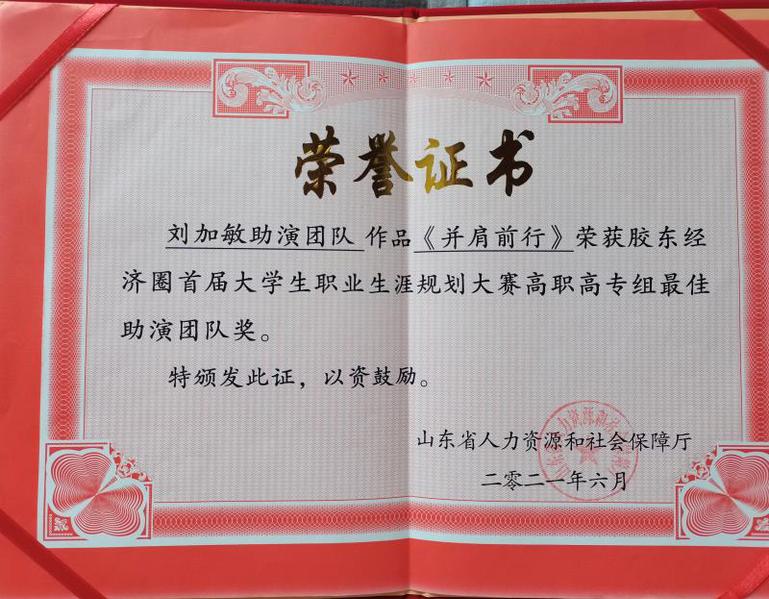 荣誉证书
刘加敏助演团队 作品《并肩前行》荣获胶东经
济圈首届大学生职业生涯规划大赛高职高专组最佳
助演团队奖。
特颁发此证，以资鼓励。
山东省人力资源和社会保障厅
二零二一年六月